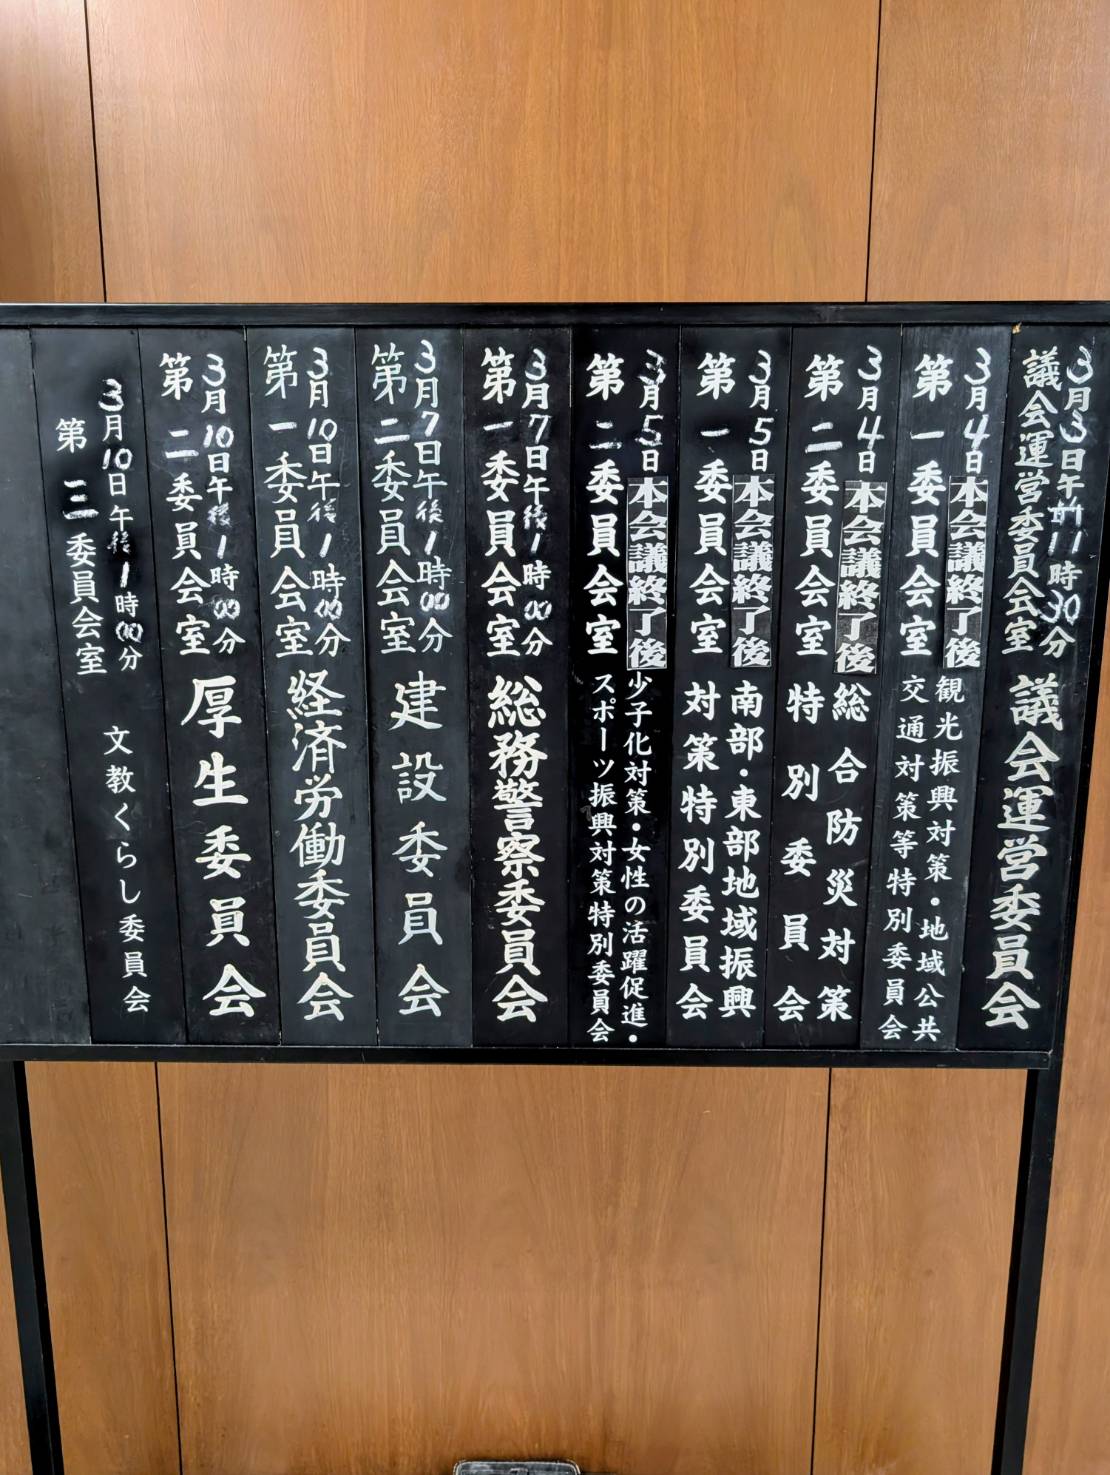 3月3日午前11時30分
議会運営委員会室
議会運営委員会
3月4日本会議終了後
第一委員会室
観光振興対策・地域公共
交通対策等特別委員会
3月4日本会議終了後
第二委員会室
総合防災対策
特別委員会
3月5日本会議終了後
第一委員会室
南部・東部地域振興
対策特別委員会
3月5日本会議終了後
第二委員会室
少子化対策・女性の活躍促進・
スポーツ振興対策特別委員会
3月7日午後1時00分
第一委員会室
総務警察委員会
3月7日午後1時00分
第二委員会室
建設委員会
3月10日午後1時00分
第一委員会室
経済労働委員会
3月10日午後1時00分
第二委員会室
厚生委員会
3月10日午後1時00分
第三委員会室
文教くらし委員会